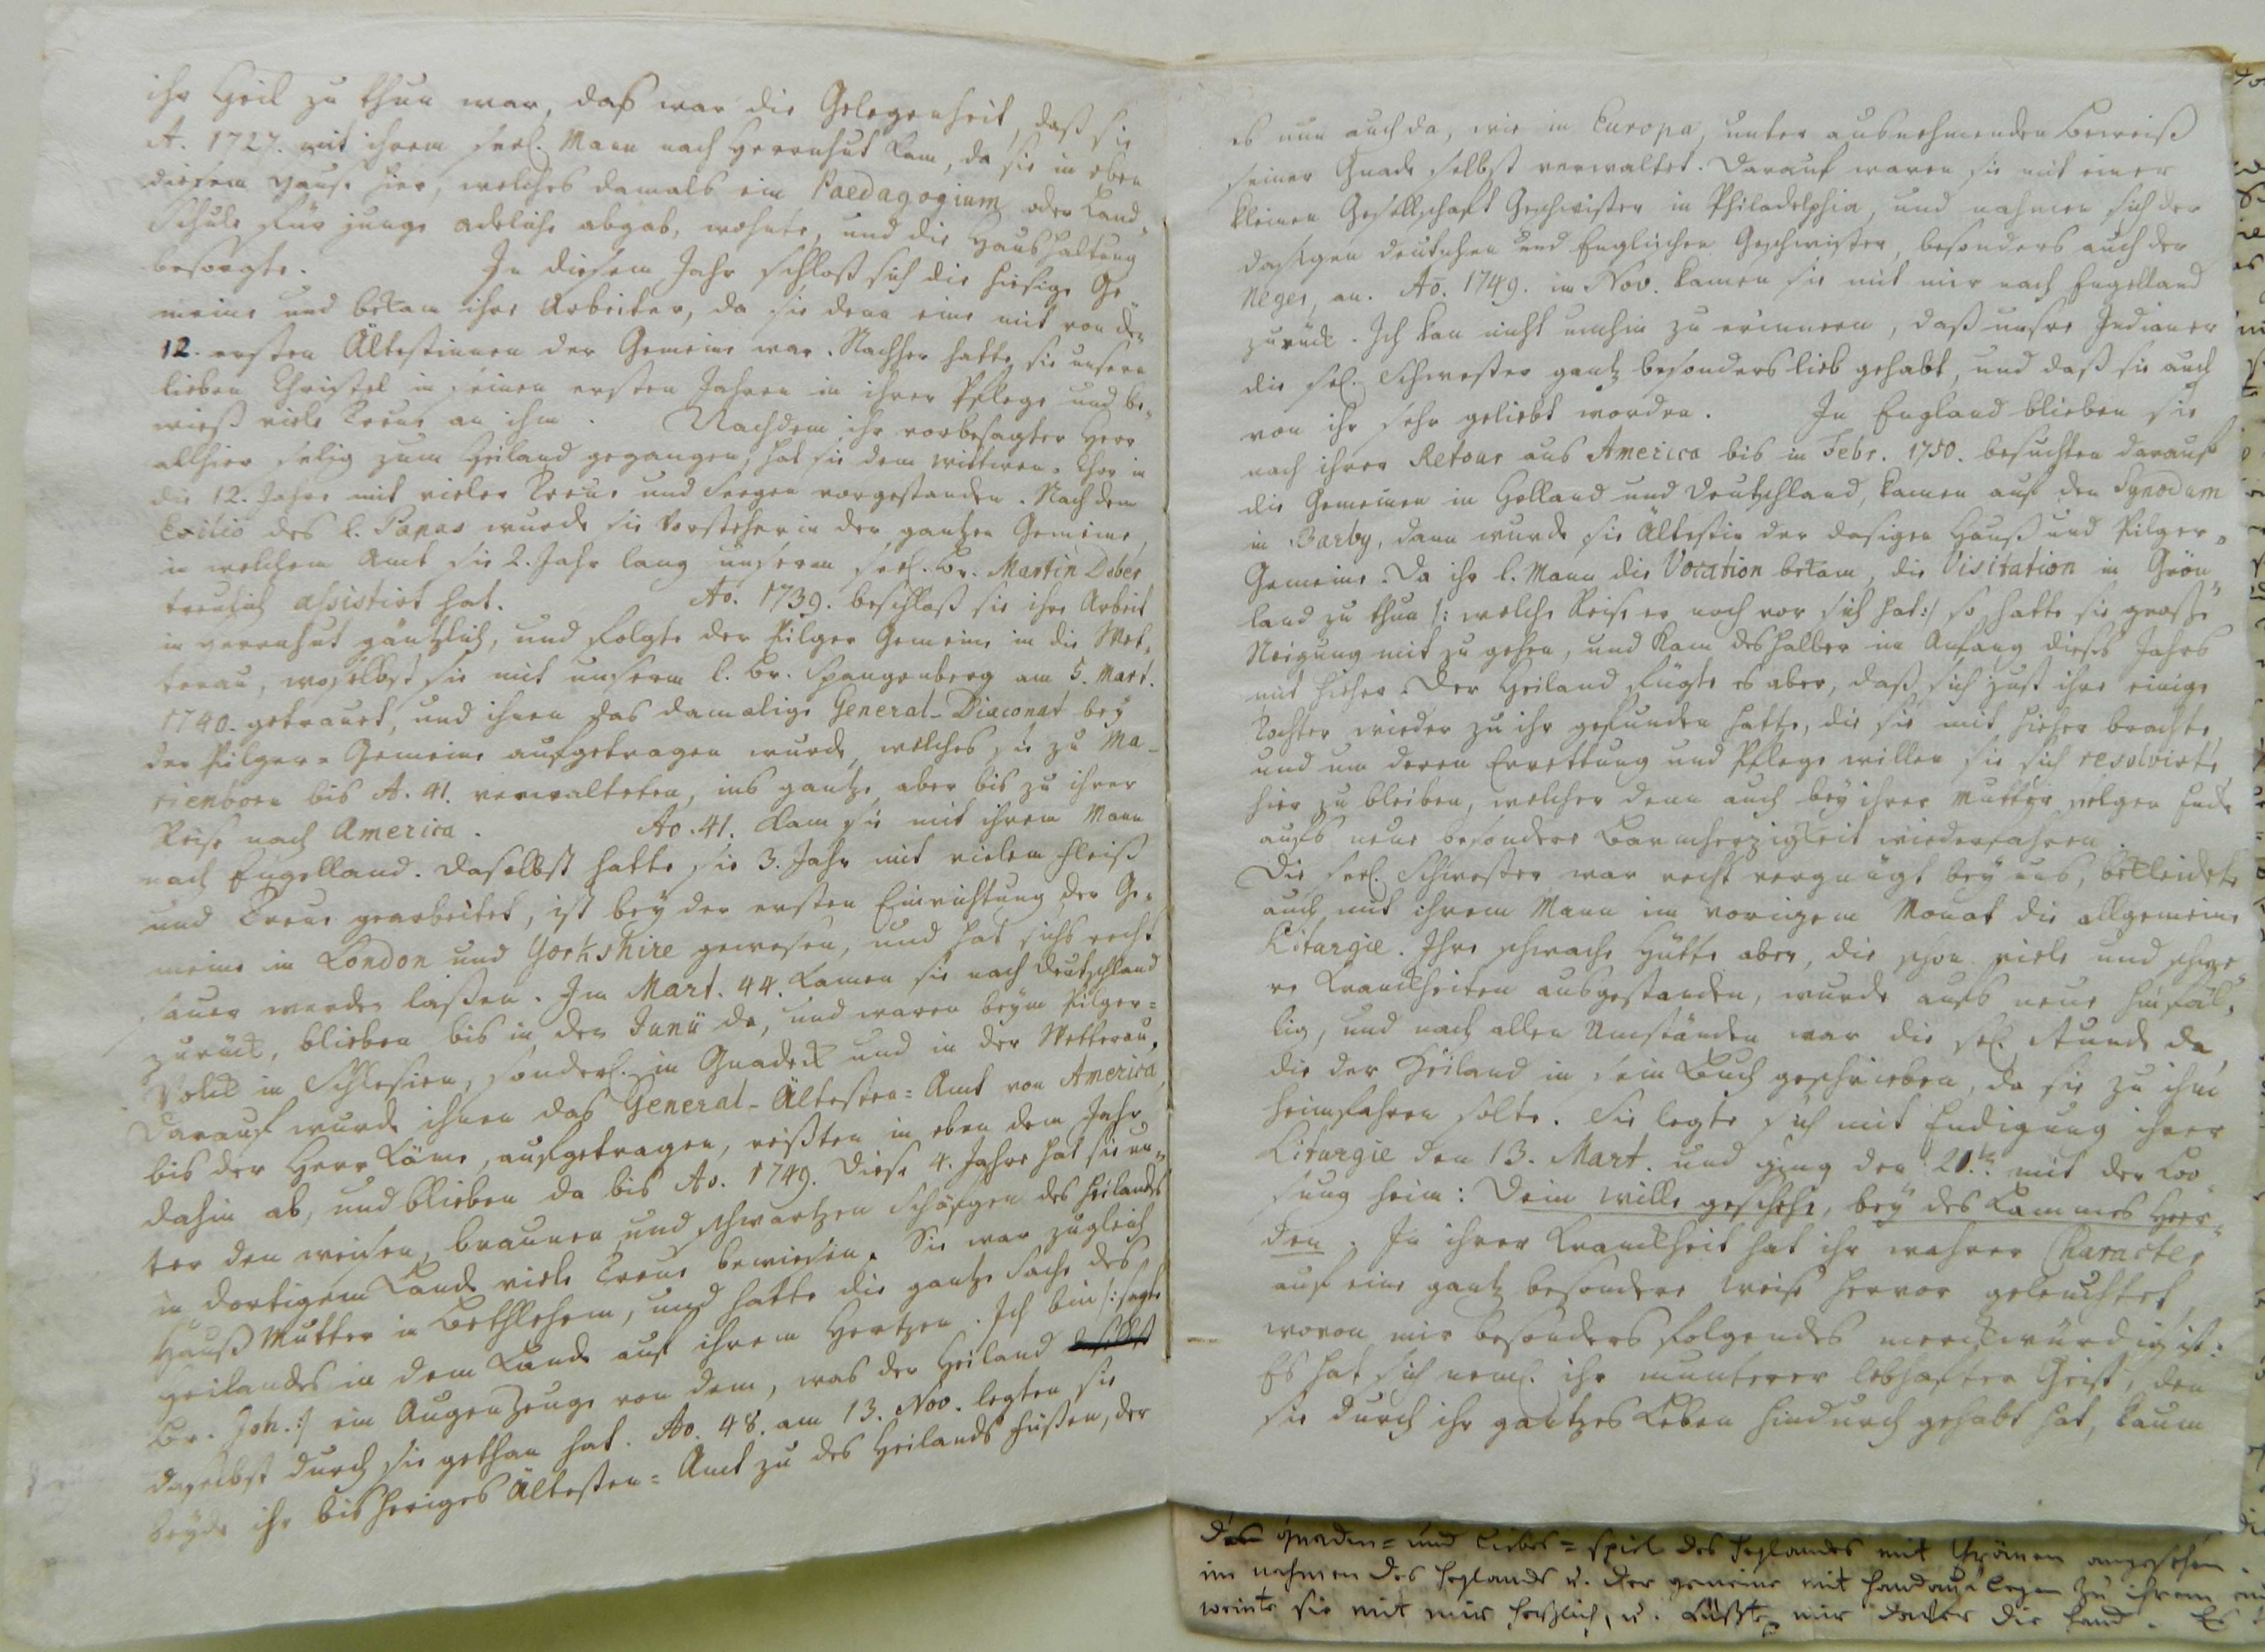 ihr Heil zu thun war, das war die Gelegenheit, daß sie
A. 1727. mit ihrem seel. Mann nach Herrnhut kam, da sie in eben
diesem Hause hier, welches damals ein Paedagogium oder Land-
Schule für junge adeliche abgab, wohnte, und die Haushaltung
besorgte. In diesem Jahr schloß sich die hiesige Ge-
meine und bekam ihre Arbeiter, da sie denn eine mit von den
12. ersten Ältestinnen der Gemeine war. Nachher hatte sie unsern
lieben Christel in seinen ersten Jahren in ihrer Pflege und be-
wieß viele Treue an ihm. Nachdem ihr vorbesagter Herr
allhier selig zum Heiland gegangen, hat sie dem Wittwen-Chor in
die 12. Jahre mit vieler Treue und Seegen vorgestanden. Nach dem
Exilio des l. Papas wurde sie Vorsteherin der gantzen Gemeine,
in welchem Amt sie 2. Jahr lang unserm seel. Br. Martin Dober
treulich assistirt hat. Ao. 1739. beschloß sie ihre Arbeit
in Herrnhut gäntzlich, und folgte der Pilger Gemeine in die Wet-
terau, woselbst sie mit unserm l. Br. Spangenberg am 5. Mart.
1740. getrauet, und ihnen das damalige General-Diaconat bey
der Pilger-Gemeine aufgetragen wurde, welches sie zu Ma-
rienborn bis A. 41. verwalteten, ins gantze aber bis zu ihrer
Reise nach America. Ao. 41. kam sie mit ihrem Mann
nach Engelland. Daselbst hatte sie 3. Jahr mit vielem Fleiß
und Treue gearbeitet, ist bey der ersten Einrichtung der Ge-
meine in London und Yorkshire gewesen, und hat sichs recht
sauer werden laßen. Im Mart. 44. kamen sie nach Deutschland
zurück, blieben bis in den Junii da, und waren beym Pilger-
Volck in Schlesien, sonderl. in Gnadeck und in der Wetterau.
Darauf wurde ihnen das General-Ältesten-Amt von America,
bis der Herr käme, aufgetragen, reißten in eben dem Jahr
dahin ab, und blieben da bis Ao. 1749. Diese 4. Jahre hat sie un-
ter den weisen, braunen und schwartzen Schäfgen des Heilandes
in dortigem Lande viele Treue bewiesen. Sie war zugleich
Hauß Mutter in Bethlehem, und hatte die gantze Sache des
Heilandes in dem Lande auf ihrem Hertzen. Ich bin /: sagte
Br. Joh. :/ ein Augenzeuge von dem, was der Heiland
daselbst durch sie gethan hat. Ao. 48. am 13. Nov. legten sie
beyde ihr bisheriges Ältesten-Amt zu des Heilands Füßen, der
es nun auch da, wie in Europa, unter ausnehmenden Beweiß
seiner Gnade selbst verwaltet. Darauf waren sie mit einer
kleinen Gesellschaft Geschwister in Philadelphia, und nahmen sich der
dasigen deutschen und Englischen Geschwister, besonders auch der
Neger, an. Ao. 1749. im Nov. kamen sie mit mir nach Engelland
zurück. Ich kan nicht umhin zu erinnern, daß unsre Indianer
die sel. Schwester gantz besonders lieb gehabt, und daß sie auch
von ihr sehr geliebt worden. In England blieben sie
nach ihrer Retour aus America bis in Febr. 1750. besuchten darauf
die Gemeinen in Holland und Deutschland, kamen auf den Synodum
in Barby, dann wurde sie Ältestin der dasigen Hauß und Pilger-
Gemeine. Da ihr l. Mann die Vocation bekam, die Visitation in Grön-
land zu thun /: welche Reise er noch vor sich hat :/ so hatte sie große
Neigung mit zu gehen, und kam deshalber im Anfang dieses Jahrs
mit hieher. Der Heiland fügte es aber, daß sich just ihre einige
Tochter wieder zu ihr gefunden hatte, die sie mit hieher brachte,
und um deren Errettung und Pflege willen sie sich resolvirte,
hier zu bleiben, welcher denn auch bey ihrer Mutter selgen Ende
aufs neue besondere Barmherzigkeit wiederfahren.
Die seel. Schwester war recht vergnügt bey uns, bekleidete
auch mit ihrem Mann im vorigem Monat die allgemeine
Liturgie. Ihre schwache Hütte aber, die schon viele und schwe-
re Kranckheiten ausgestanden, wurde aufs neue hinfäl-
lig, und nach allen Umständen war die sel. Stunde da,
die der Heiland in sein Buch geschrieben, da sie zu ihm
heimfahren solte. Sie legte sich mit Endigung ihrer
Liturgie den 13. Mart. und ging den 21.te mit der Loo-
sung heim: Dein Wille geschehe, bey des Lammes Heer-
den. In ihrer Kranckheit hat ihr wahrer Character
auf eine gantz besondere Weise hervor geleuchtet,
wovon mir besonders folgendes merckwürdig ist:
Es hat sich neml. ihr munterer lebhafter Geist, den
sie durch ihr gantzes Leben hindurch gehabt hat, kaum
Gnaden- und Liebes-spiel des Heylandes mit Thränen angesehen
im nahmen des Heylands u. der gemeine mit Handauflegen zu ihrem
weinte sie mit mir hertzlich, u. küßte mir die Hand. Es